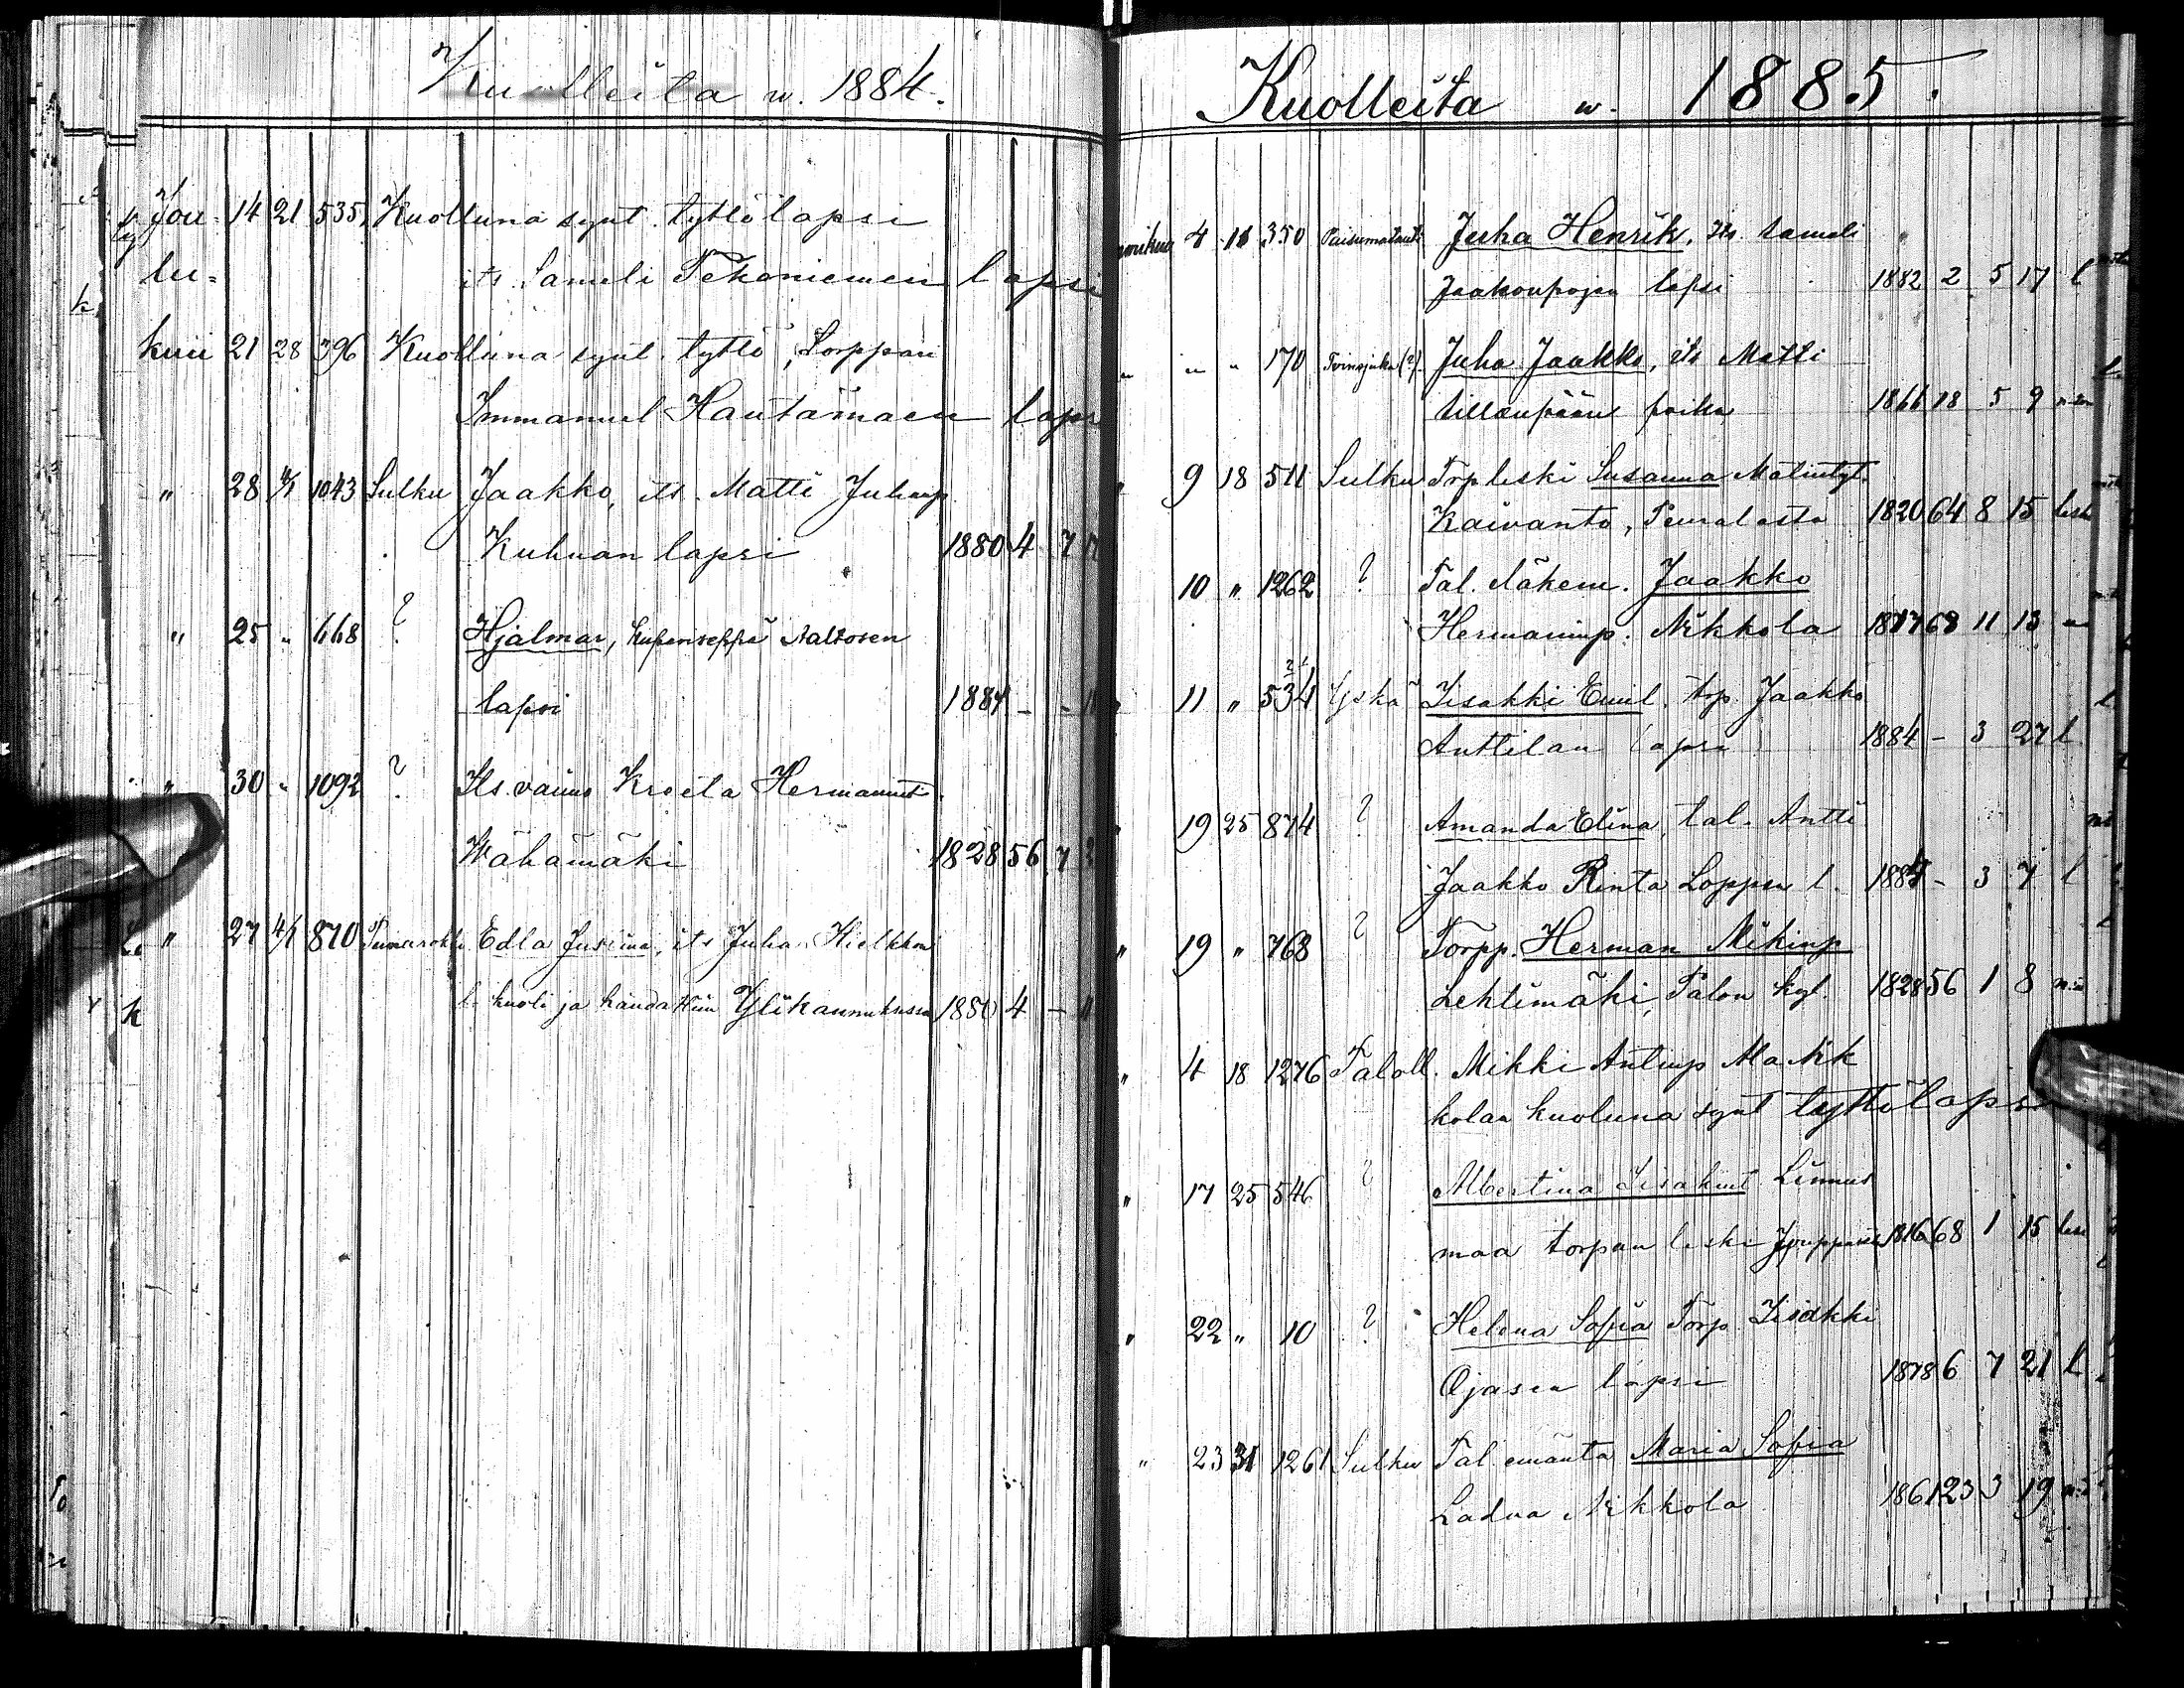 Kuolleita w. 1884.
Jou- 14 21 535 Kuolluna synt. tyttölapsi
lu- its. Sameli Tekoniemen lapsi
kuu 21 28 396 Kuolluna synt. tyttö, Torppari
Immanuel Hautamäen laps
" 28 1043 Sulku Jaakko, its. Matti Juhanp
Kuhnan lapsi 1880 4 7
" 25 " 668 ? Hjalmar, kupariseppä Aaltosen
lapsi 1884 - -
" 30 " 1092 ? Its. vaimo Kreeta Hermannint.
Wähämäki 1828 56 7
" 27 4/1 870 Edla Jusiina, its Juha Kielkkon
l. kuoli ja haudattiin Ylikannuksessa 1880 4 -
Kuolleita w. 1885.
4 11 350 Juha Henrik, Its. Sameli
Jaakonpojan lapsi 1882 2 5 17 l
" " " 170 (?) Juha Jaakko, its Matti
Sillanpään poika 1866 18 5 9
" 9 18 511 Sulku Trp leski Susanna Matintyt.
Kaivanto, Peuralasta 1820 64 8 15 lesk
10 " 1262 ? Tal. Jaakko
Hermaninp. Nikkola 68 11 13
" 11 " 534 Yskä Iisakki Emil, trp. Jaakko
Anttilan lapsi 1884 - 3 27 l
" 19 25 874 ? Amanda Elina, tal. Antti
Jaakko Rinta Loppen l. 1884 - 3 7 l
" 19 " 768 ? Torpp. Herman Mikinp
Lehtimäki, Talon kyl. 1828 56 1 8
" 4 18 1276 Taloll. Mikki Antinp
kolan kuoluna synt tyttölapsi
" 17 25 546 ? Albertina Iisakint Linnus
maa torpan leski 1816 68 1 15 lesk
" 22 " 10 ? Helena Sofia Torp. Iisakki
Ojasen lapsi 1878 6 7 21 l
" 23 31 1261 Sulku Tal. emäntä Maria Sofia
Nikkola 1861 23 3 19